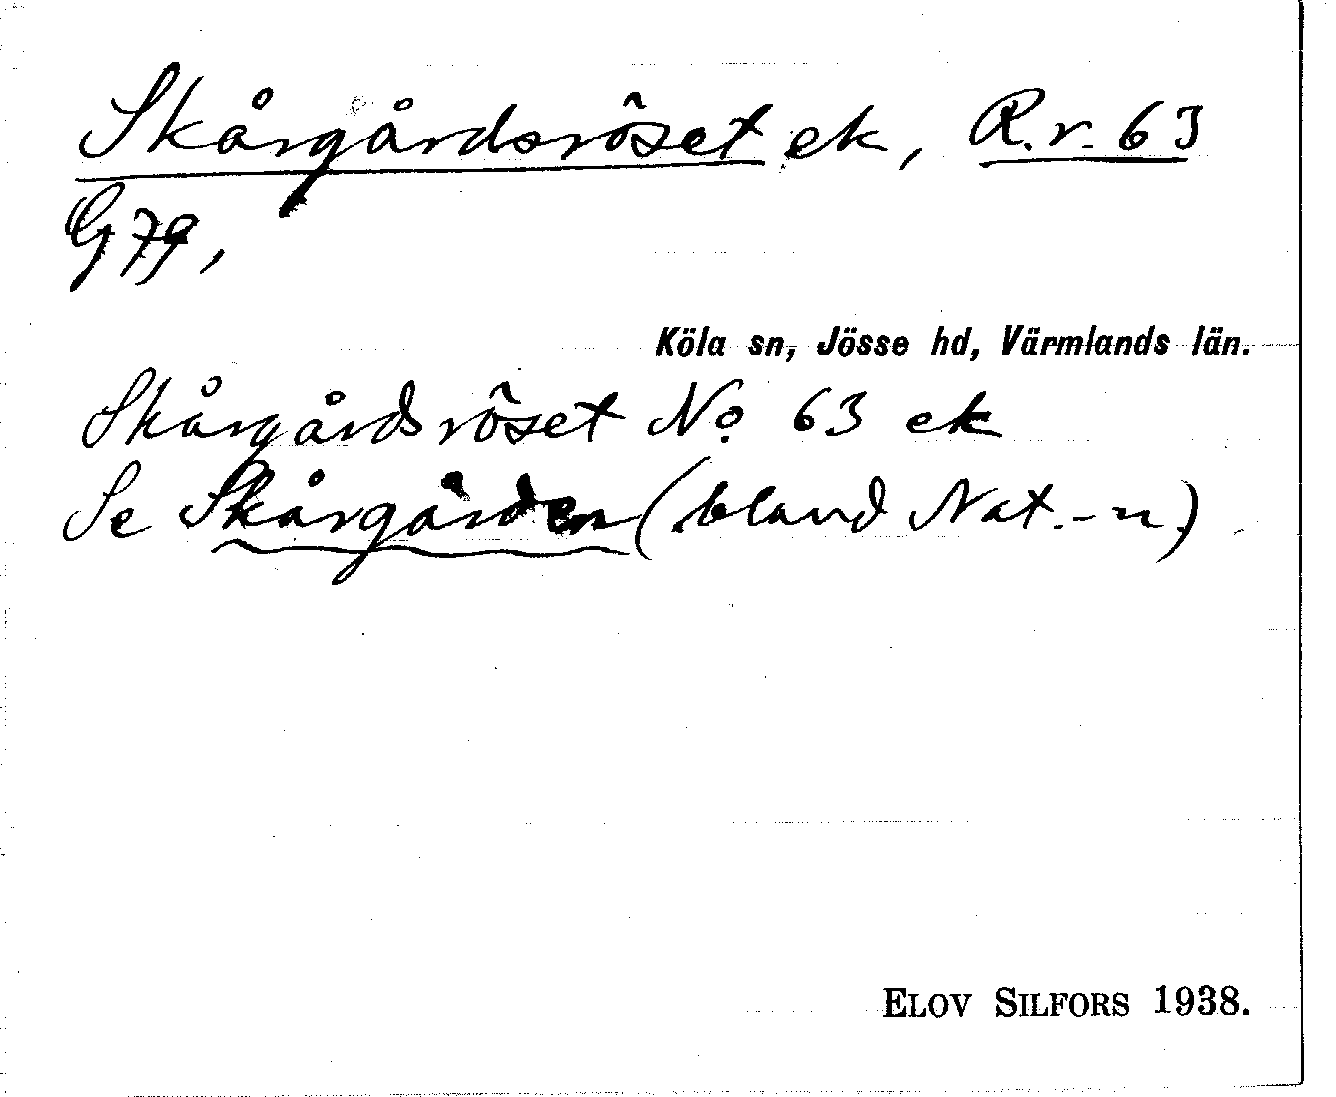 Skårgårdsröset ek, R.r. 63
G 79,
Köla sn, Jösse hd, Värmlands län.
Skårgårdsröset No 63 ek
Se Skårgården (bland Nat.-n.)
ELOV SILFORS 1938.